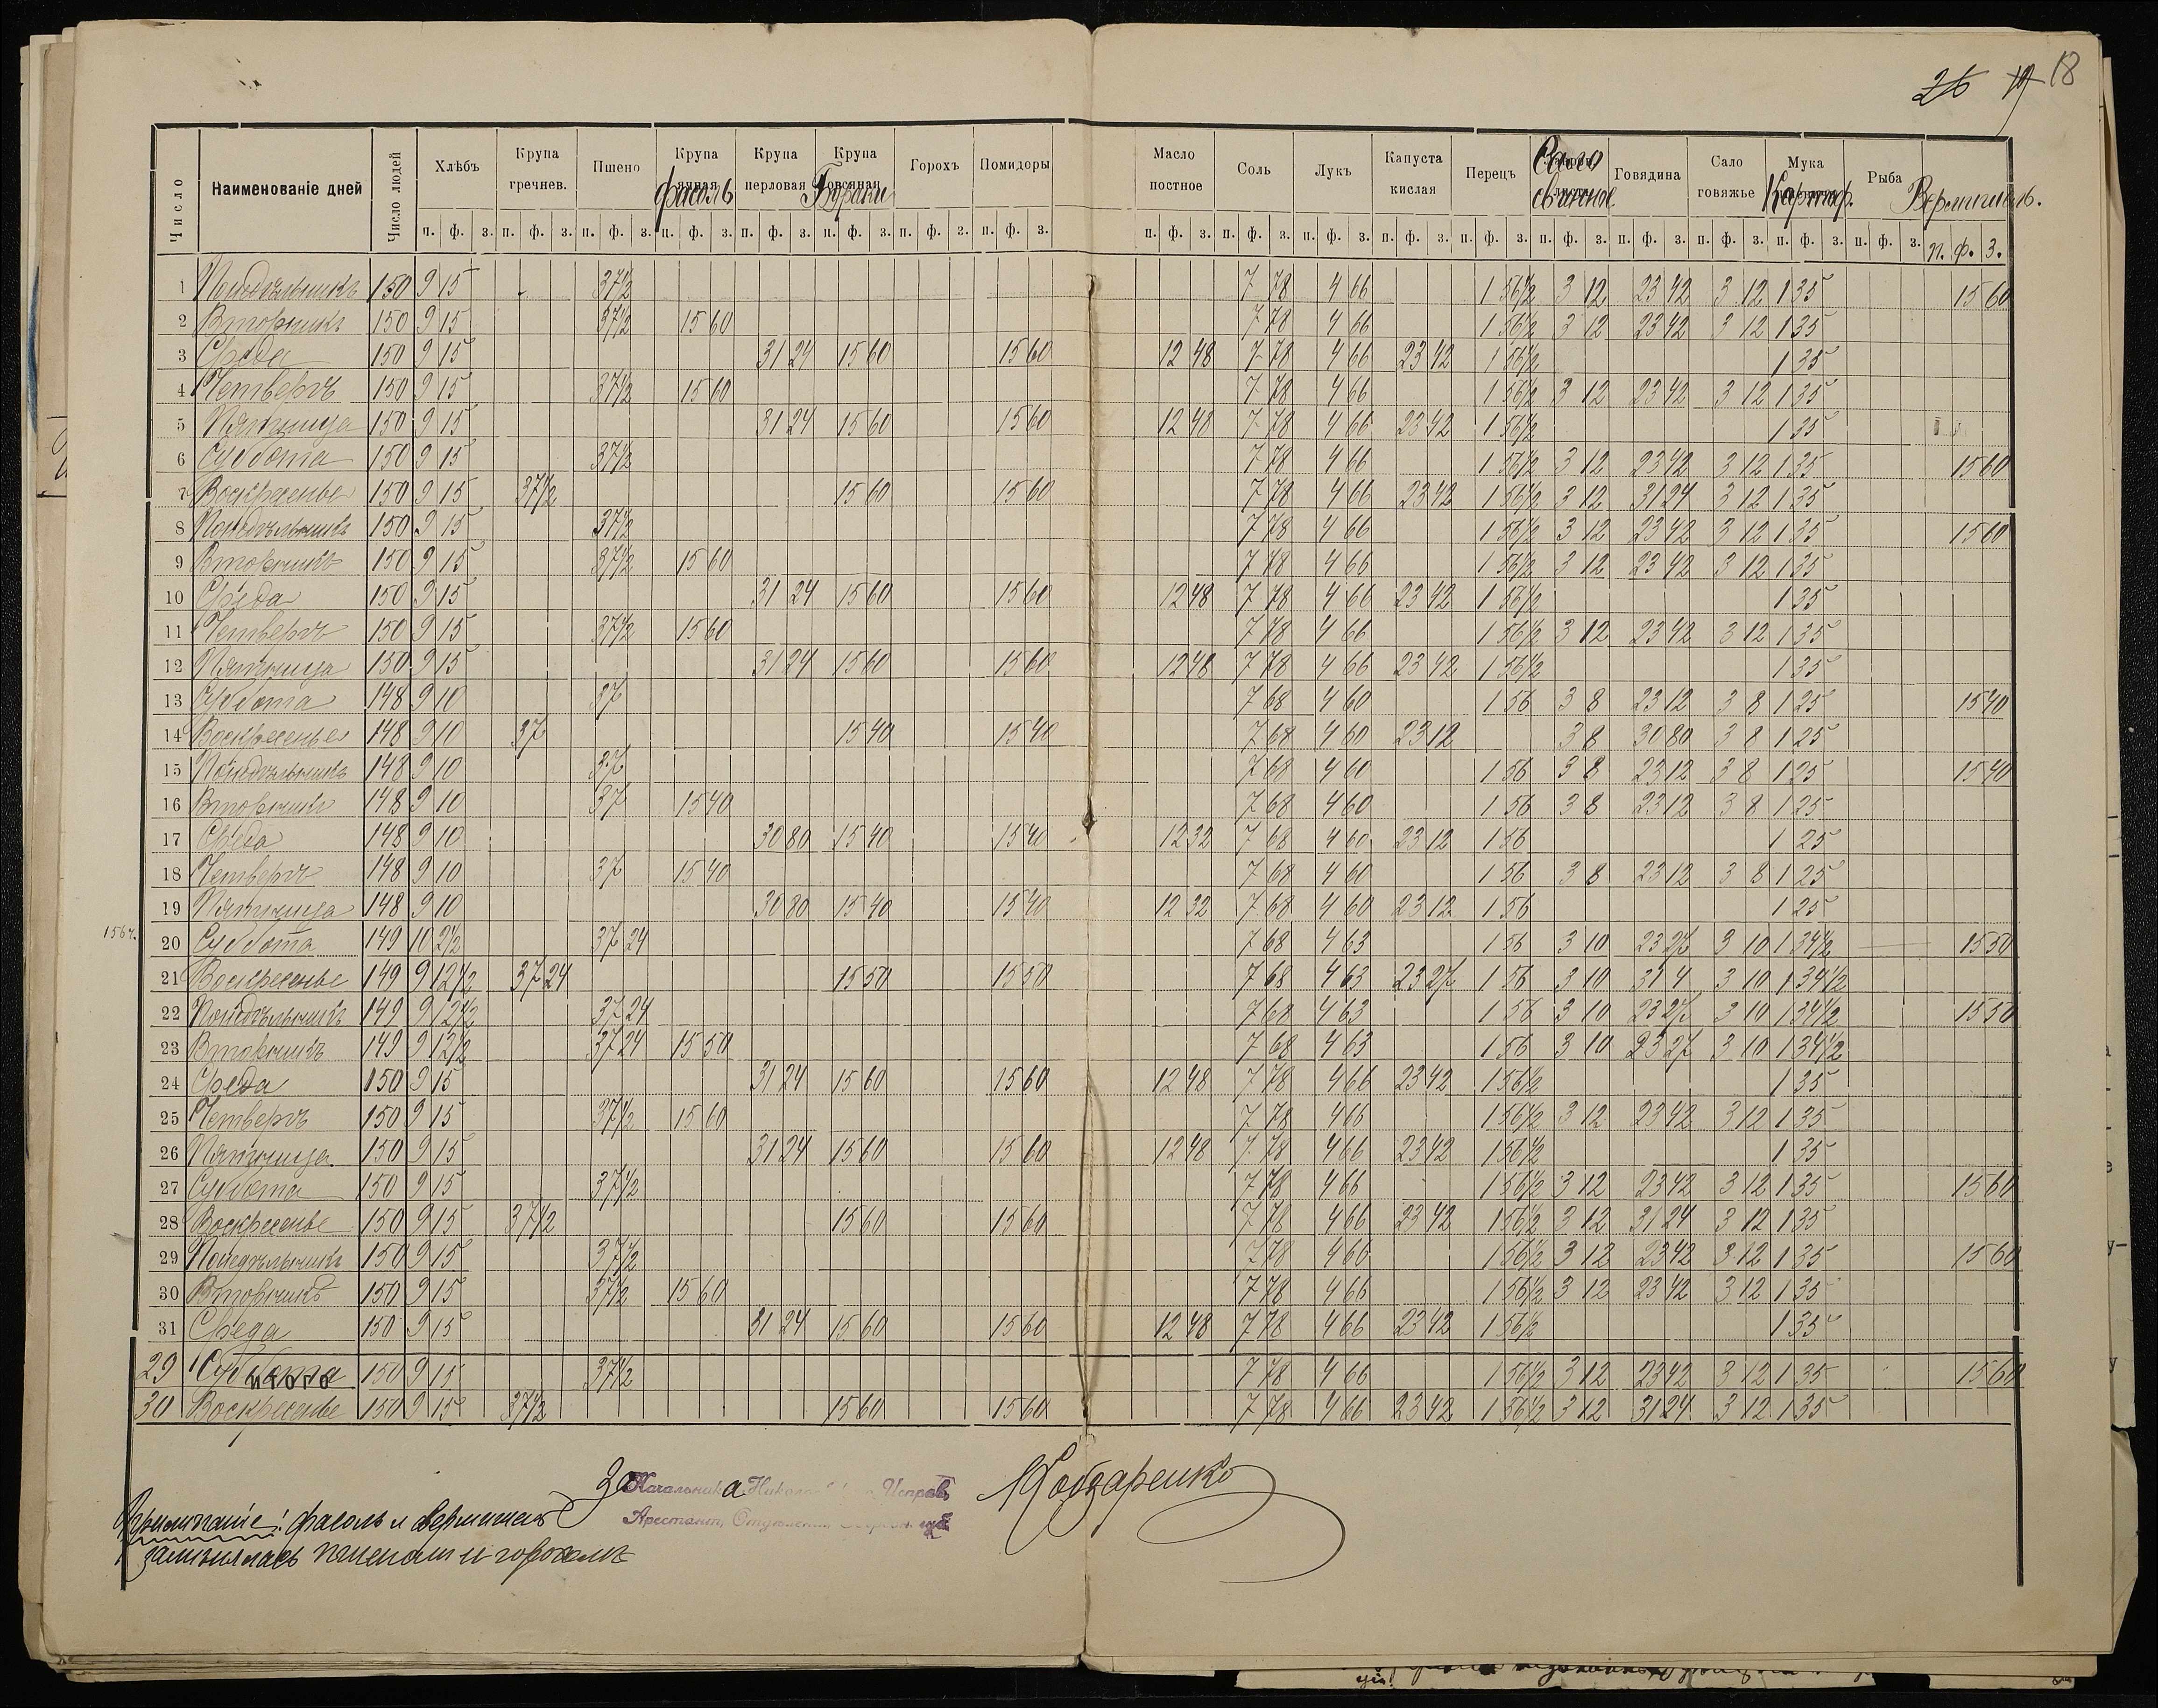 26 19 18
Число Наименованіе дней Число людей Хлѣбъ Крупа гречнев. Пшено Крупа Фасоль Крупа перловая Крупа овсяная Бураки Горохъ Помидоры Масло постное Соль Лукъ Капуста кислая Перецъ Сало свинное Говядина Сало говяжье Мука Картоф. Рыба Вермишель.
п. ф. з. п. ф. з. п. ф. з. п. ф. з. п. ф. з. п. ф. з. п. ф. з. п. ф. з. п. ф. з. п. ф. з. п. ф. з. п. ф. з. п. ф. з. п. ф. з. п. ф. з. п. ф. з. п. ф. з. п. ф. з. п. ф. з.
1 Понедѣльникъ 150 9 15 37½ 7 78 4 66 1 56½ 3 12 23 42 3 12 1 35 15 60
2 Вторникъ 150 9 15 37½ 15 60 7 78 4 66 1 56½ 3 12 23 42 3 12 1 35
3 Среда 150 9 15 31 24 15 60 15 60 12 48 7 78 4 66 23 42 1 56½ 1 35
4 Четвергъ 150 9 15 37½ 15 60 7 78 4 66 1 56½ 3 12 23 42 3 12 1 35
5 Пятница 150 9 15 31 24 15 60 15 60 12 48 7 78 4 66 23 42 1 56½ 1 35
6 Суббота 150 9 15 37½ 7 78 4 66 1 56½ 3 12 23 42 3 12 1 35 15 60
7 Воскресенье 150 9 15 37½ 15 60 15 60 7 78 4 66 23 42 1 56½ 3 12 31 24 3 12 1 35
8 Понедѣльникъ 150 9 15 37½ 7 78 4 66 1 56½ 3 12 23 42 3 12 1 35 15 60
9 Вторникъ 150 9 15 37½ 15 60 7 78 4 66 1 56½ 3 12 23 42 3 12 1 35
10 Среда 150 9 15 31 24 15 60 15 60 12 48 7 78 4 66 23 42 1 56½ 1 35
11 Четвергъ 150 9 15 37½ 15 60 7 78 4 66 1 56½ 3 12 23 42 3 12 1 35
12 Пятница 150 9 15 31 24 15 60 15 60 12 48 7 78 4 66 23 42 1 56½ 1 35
13 Суббота 148 9 10 37 7 68 4 60 1 56 3 8 23 12 3 8 1 25 15 40
14 Воскресенье 148 9 10 37 15 40 15 40 7 68 4 60 23 12 3 8 30 80 3 8 1 25
15 Понедѣльникъ 148 9 10 37 7 68 4 60 1 56 3 8 23 12 3 8 1 25 15 40
16 Вторникъ 148 9 10 37 15 40 7 68 4 60 1 56 3 8 23 12 3 8 1 25
17 Среда 148 9 10 30 80 15 40 15 40 12 32 7 68 4 60 23 12 1 56 1 25
18 Четвергъ 148 9 10 37 15 40 7 68 4 60 1 56 3 8 23 12 3 8 1 25
19 Пятница 148 9 10 30 80 15 40 15 40 12 32 7 68 4 60 23 12 1 56 1 25
20 Суббота 149 10 2½ 37 24 7 68 4 63 1 56 3 10 23 27 3 10 1 34½ 15 50
21 Воскресенье 149 9 12½ 37 24 15 50 15 50 7 68 4 63 23 27 1 56 3 10 31 4 3 10 1 34½
22 Понедѣльникъ 149 9 12½ 37 24 7 68 4 63 1 56 3 10 23 27 3 10 1 34½ 15 50
23 Вторникъ 149 9 12½ 37 24 15 50 7 68 4 63 1 56 3 10 23 27 3 10 1 34½
24 Среда 150 9 15 31 24 15 60 15 60 12 48 7 78 4 66 23 42 1 56½ 1 35
25 Четвергъ 150 9 15 37½ 15 60 7 78 4 66 1 56½ 3 12 23 42 3 12 1 35
26 Пятница 150 9 15 31 24 15 60 15 60 12 48 7 78 4 66 23 42 1 56½ 1 35
27 Суббота 150 9 15 37½ 7 78 4 66 1 56½ 3 12 23 42 3 12 1 35 15 60
28 Воскресенье 150 9 15 37½ 15 60 15 60 7 78 4 66 23 42 1 56½ 3 12 31 24 3 12 1 35
29 Понедѣльникъ 150 9 15 37½ 7 78 4 66 1 56½ 3 12 23 42 3 12 1 35 15 60
30 Вторникъ 150 9 15 37½ 15 60 7 78 4 66 1 56½ 3 12 23 42 3 12 1 35
31 Среда 150 9 15 31 24 15 60 15 60 12 48 7 78 4 66 23 42 1 56½ 1 35
29 Суббота ИТОГО 150 9 15 37½ 7 78 4 66 1 56½ 3 12 23 42 3 12 1 35 15 60
30 Воскресенье 150 9 15 37½ 15 60 15 60 7 78 4 66 23 42 1 56½ 3 12 31 24 3 12 1 35
За Начальника Исправ.
Арестант. Отдѣленія
Примѣчаніе: фасоль и вермишель
замѣнялась пшеномъ и горохомъ